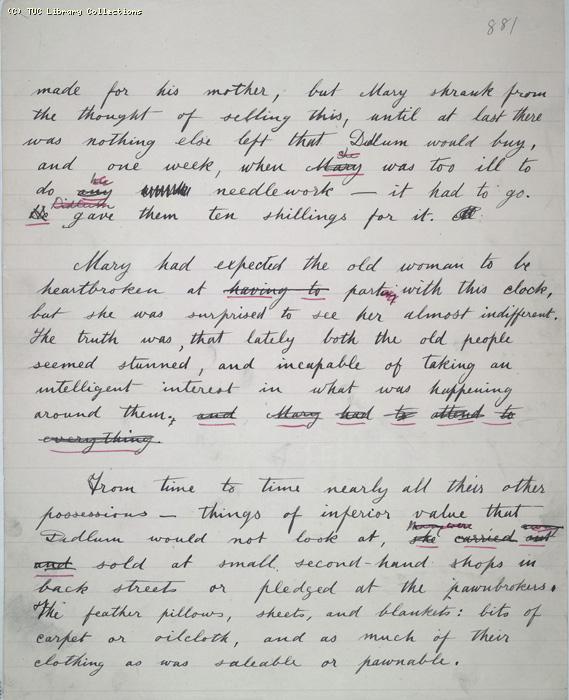 (C) TUC Library Collections
881
made for his mother, but Mary shrank from
the thought of selling this, until at last there
was nothing else left that Didlum would buy,
and one week, when Mary she was too ill to
do any needlework – it had to go.
He Didlum gave them ten shillings for it.
Mary had expected the old woman to be
heartbroken at having to parting with this clock,
but she was surprised to see her almost indifferent.
The truth was, that lately both the old people
seemed stunned, and incapable of taking an
intelligent interest in what was happening
around them, and Mary had to attend to
everything.
From time to time nearly all their other
possessions – things of inferior value that
Didlum would not look at, she carried out
and sold at small second-hand shops in
back streets or pledged at the pawnbrokers.
The feather pillows, sheets, and blankets: bits of
carpet or oilcloth, and as much of their
clothing as was saleable or pawnable.